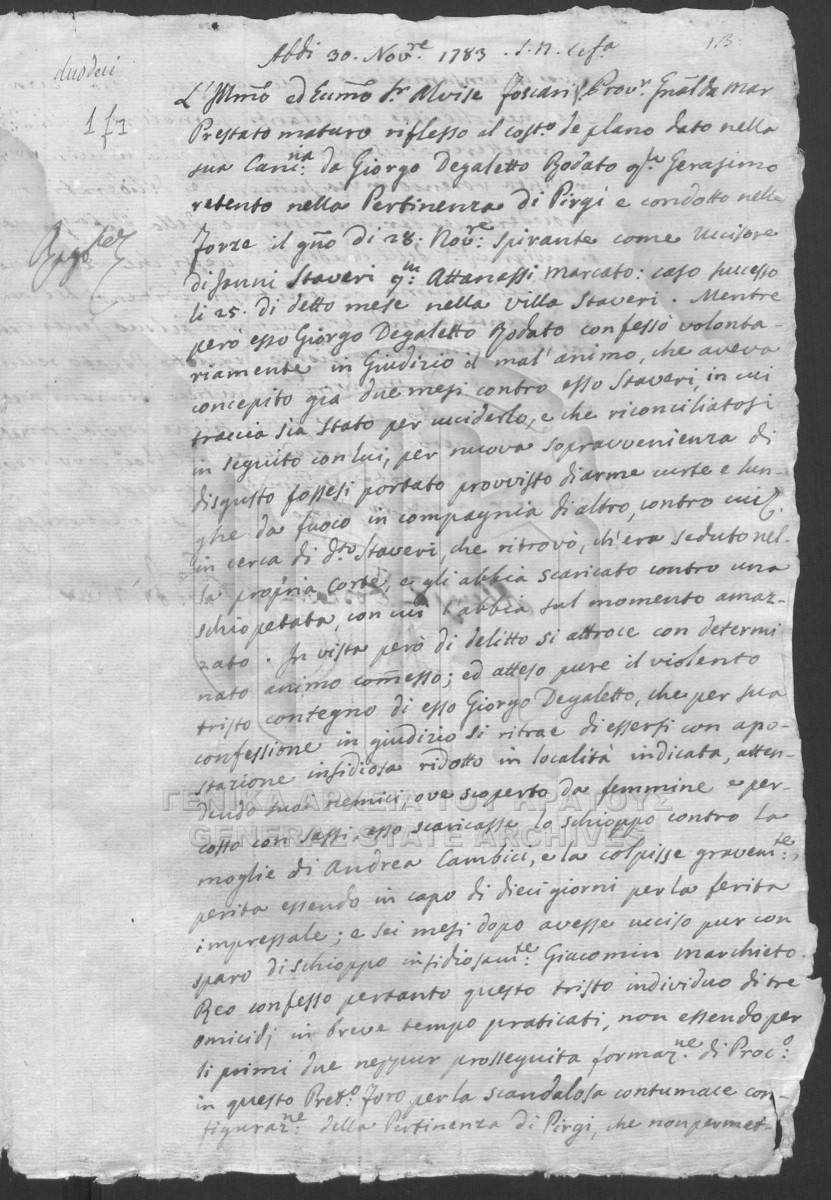 113.
Abdi 30. Nov.re 1783. S. N. Cef.a
duodeci
1f1
L'Jllmo ed Eccmo Sr Alvise Foscari Prov.r Gnal da Mar
Prestato maturo riflesso al cost.o de plano dato nella
sua da Giorgo Degaletto Bodato q.m Gerasimo
retento nella Pertinenza di Pirgi e condotto nelle
Forze il gno di 28: Nov.re spirante come Uccisore
di Janni Staveri q.m Attanassi marcato: caso successo
li 25. di detto mese nella villa Staveri. Mentre
però esso Giorgo Degaletto Bodato confessò volonta-
riamente in Giudizio il mal'animo, che aveva
concepito già due mesi contro esso Staveri, in cui
traccia sia stato per ucciderlo, e che riconciliatosi
in seguito con lui, per nuova sopravvenienza di
disgusto fossesi portato provvisto di arme curte e lun-
ghe da fuoco in compagnia di altro, contro cui
in cerca di d.to Staveri, che ritrovò, ch'era seduto nel-
la propria corte, e gli abbia scaricato contro una
schiopetata, con cui l'abbia sul momento amaz-
zato. In vista però di delitto si attroce con determi
nato animo comesso; ed atteso pure il violento
tristo contegno di esso Giorgo Degaletto, che per sua
confessione in giudizio si ritrae di essersi con apo-
stazione insidiosa ridotto in località indicata, atten-
dendo suoi nemici, ove scoperto da femmine e per-
cosso con sassi, esso scaricasse lo schioppo contro la
moglie di Andrea Cambici, e la colpisse gravem.te,
perita essendo in capo di dieci giorni per la ferita
impressale; e sei mesi dopo avesse ucciso pur con
sparo di schioppo insidiosam.te Giacomin Marchieto.
Reo confesso pertanto questo tristo individuo di tre
omicidj in breve tempo praticati, non essendo per
li primi due neppur prosseguita formaz.ne di Proc.o
in questo Pret.o Foro per la scandalosa contumace con-
figuraz.ne della Pertinenza di Pirgi, che non permet-
ΓΕΝΙΚΑ ΑΡΧΕΙΑ ΤΟΥ ΚΡΑΤΟΥΣ
GENERAL STATE ARCHIVES